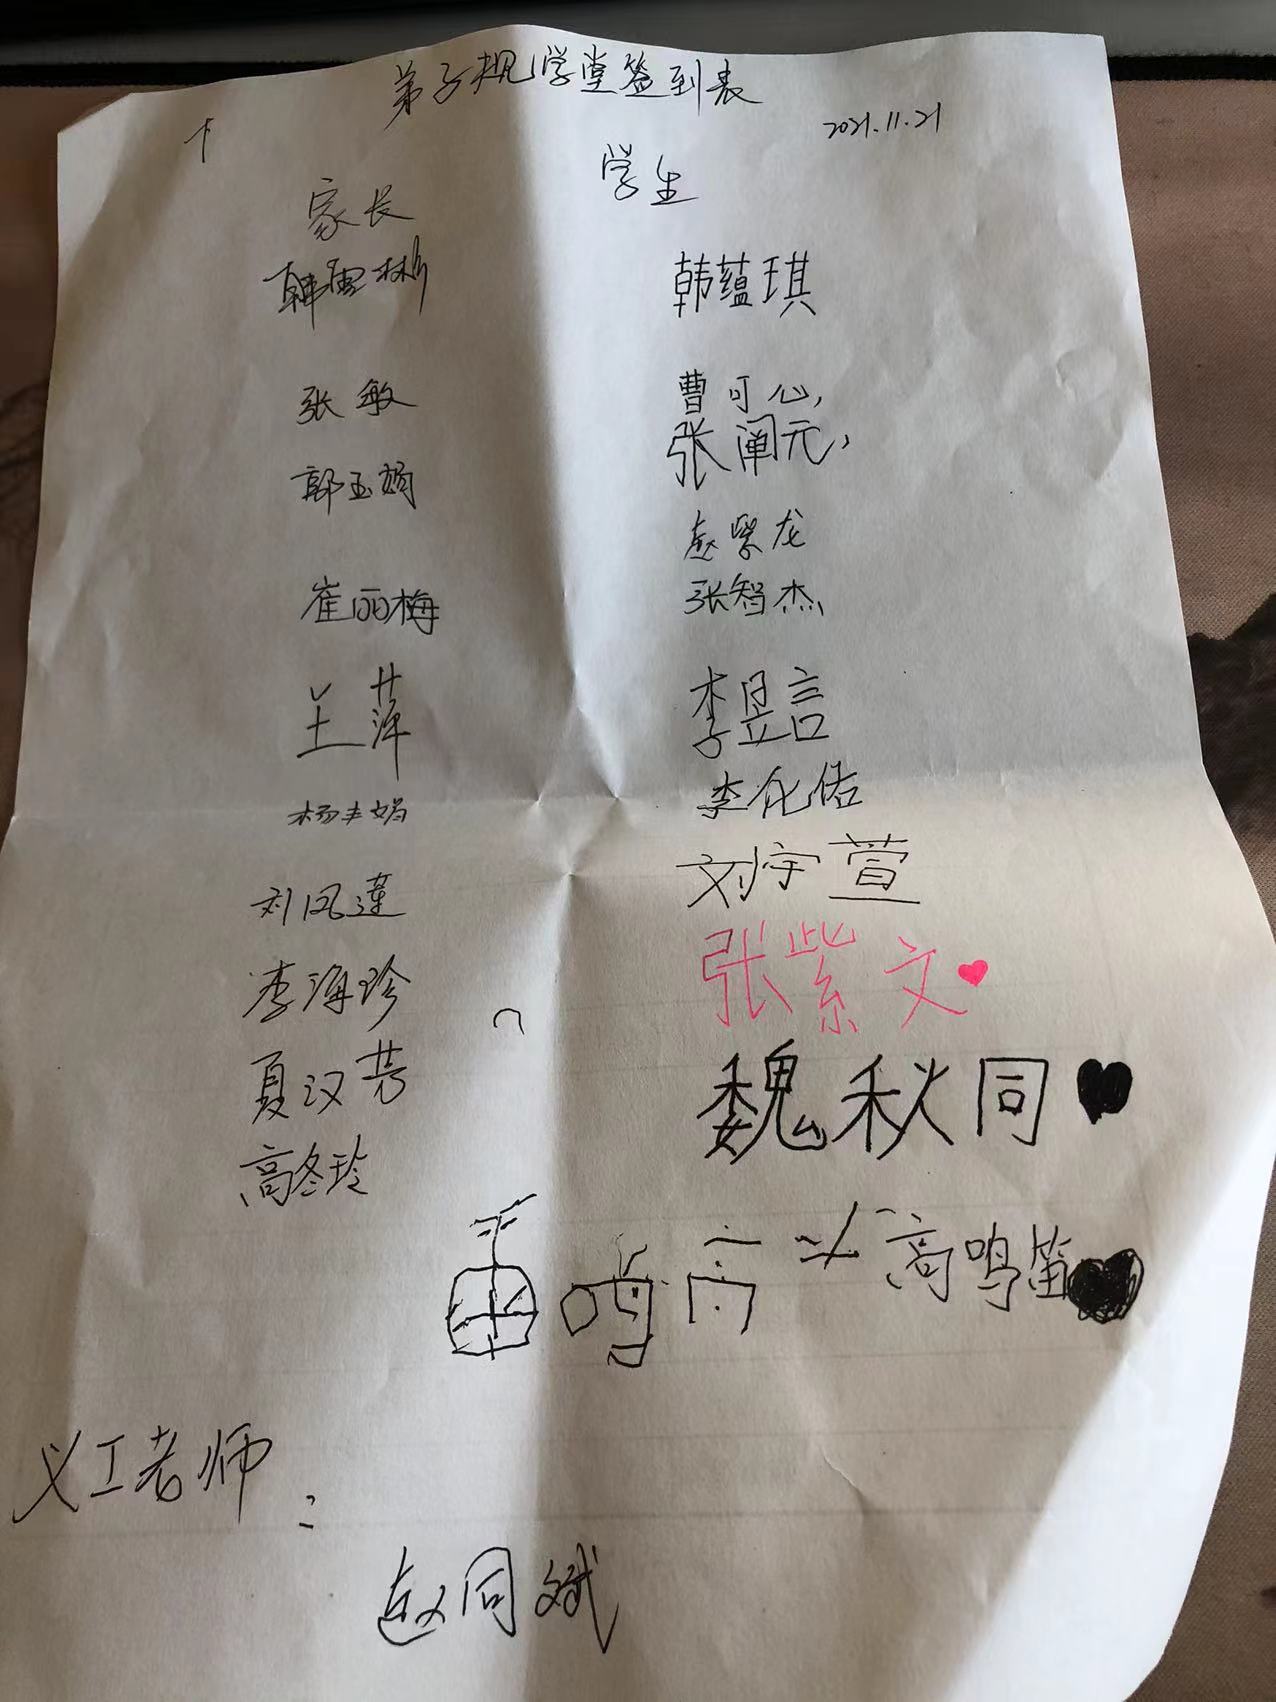 弟子规学堂签到表
2021.11.21
家长 学生
韩雪彬 韩蕴琪
张敏 曹可心,
张阐元,
郭玉娟 赵紫龙
崔丽梅 张智杰
王萍 李昱言
杨丰娟 李化佑
刘风莲 刘宇萱
李海珍 张紫文
夏汉芳 魏秋同
高冬玲
鸣高 高鸣笛
义工老师:
赵同斌